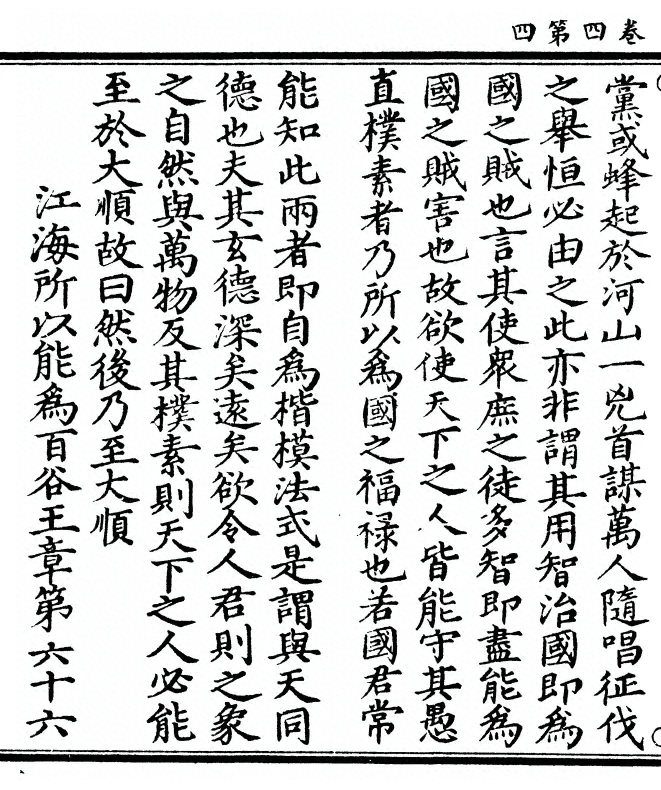 四第四卷
黨或蜂起於河山一兇首謀萬人隨唱征伐
之舉恒必由之此亦非謂其用智治國即為
國之賊也言其使眾庶之徒多智即盡能為
國之賊害也故欲使天下之人皆能守其愚
直樸素者乃所以為國之福祿也若國君常
能知此兩者即自為楷模法式是謂與天同
德也夫其玄德深矣遠矣欲令人君則之象
之自然與萬物反其樸素則天下之人必能
至於大順故曰然後乃至大順
江海所以能為百谷王章第六十六